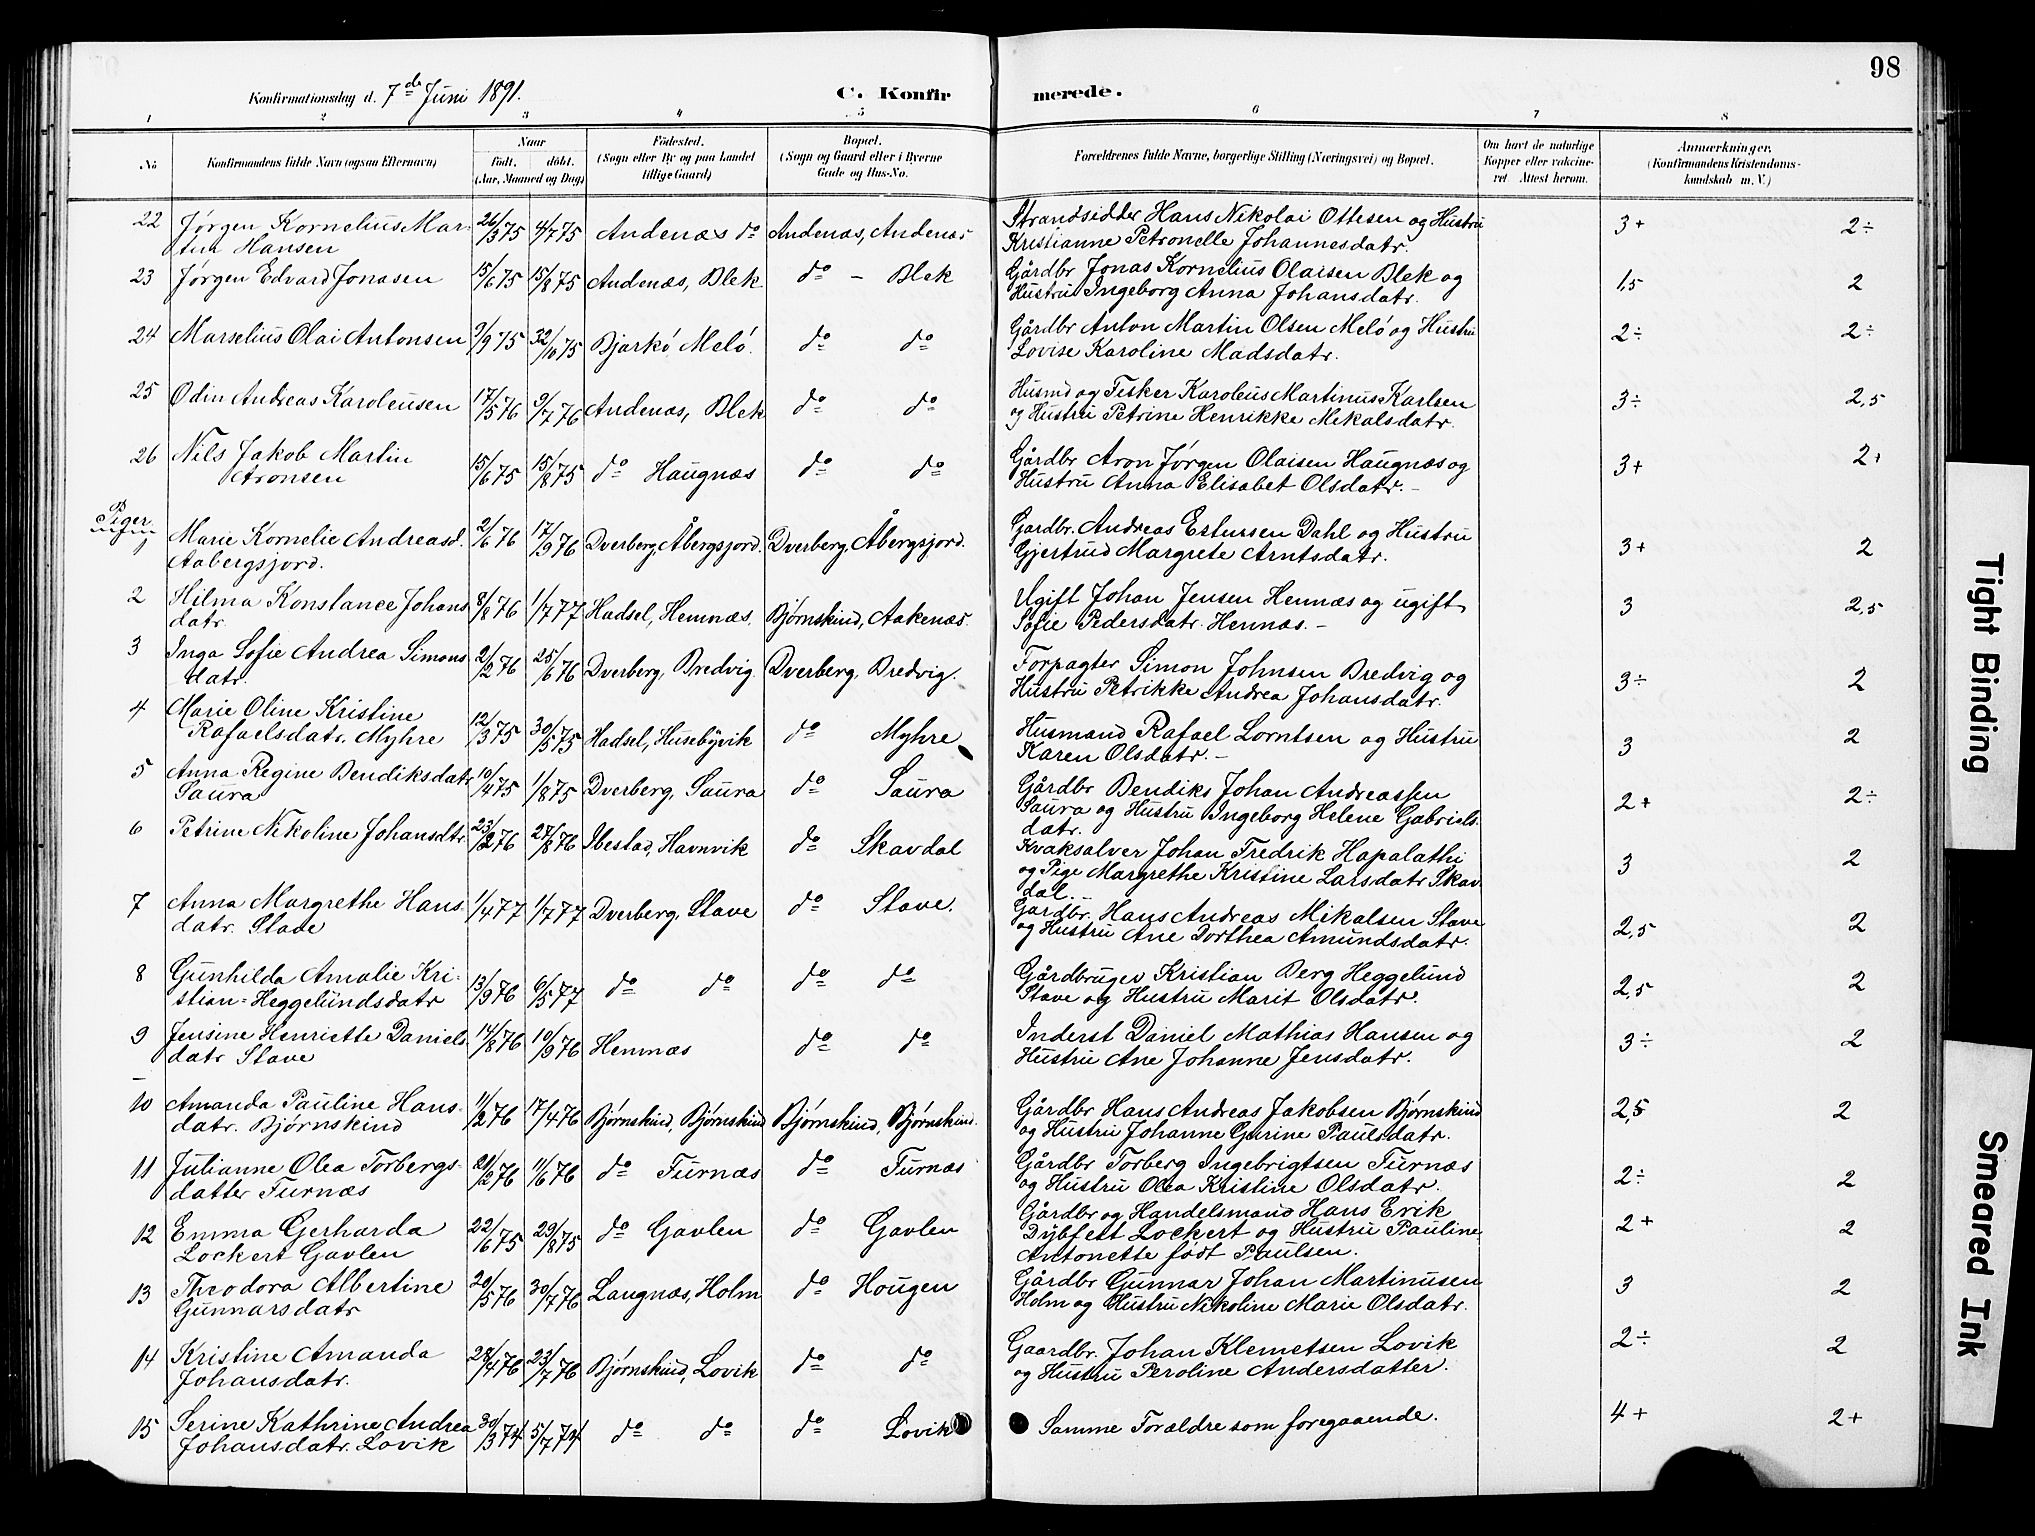 98
Konfirmationsdag d. 7de Juni 1891.
C. Konfirmerede.
1 2 3 4 5 6 7 8
No Konfirmandens fulde Navn (ogsaa Efternavn) Naar født. døbt. (Aar, Maaned og Dag) Fødested. (Sogn eller By og paa Landet tillige Gaard) Bopæl. (Sogn og Gaard eller i Byerne Gade og Hus-No. Forældrenes fulde Navne, borgerlige Stilling (Næringsvei) og Bopæl. Om havt de naturlige Kopper eller vakcineret. Attest herom. Anmerkninger. (Konfirmandens Kristendomskundskab m. V.)
22 Jørgen Kornelius Mar- 26/3 75 4/7 75 Andenæs do Andenæs, Andenæs Strandsidder Hans Nikolai Ottesen og Hustru 3+ 2÷
tin Hansen Kristianne Petronelle Johannesdatr.
23 Jørgen Edvard Jonasen 15/6 75 15/8 75 Andenæs, Blek do - Blek Gårdbr Jonas Kornelius Olaisen Blek og 1,5 2
Hustru Ingeborg Anna Johansdatr.
24 Marselius Olai Antonsen 9/9 75 32/10 75 Bjarkø Melø. do do Gårdbr Anton Martin Olsen Melø og Hustru 2÷ 2÷
Lovise Karoline Madsdatr.
25 Odin Andreas Karoleusen 17/5 76 9/7 76 Andenæs, Blek do do Husmd og Fisker Karoleus Martinus Karlsen 3÷ 2,5
og Hustru Petrine Henrikke Mekalsdatr.
26 Nils Jakob Martin 15/6 75 15/8 75 do Haugnæs do do Gårdbr Aron Jørgen Olaisen Haugnæs og 3+ 2+
Aronsen Hustru Anna Elisabet Olsdatr. -
Piger
1 Marie Kornelie Andreasd. 2/6 76 17/9 76 Dverberg, Åbergsjord. Dverberg, Åbergsjord. Gardbr. Andreas Estensen Dahl og Hustru 3+ 2
Aabergsjord. Gjertrud Margrete Arntsdatr.
2 Hilma Konstance Johans 8/8 76 1/7 77 Hadsel, Hennæs. Bjørnskind, Aakenæs. Ugift Johan Jensen Hennæs og ugift 3 2,5
datr. Sofie Pedersdatr. Hennæs. -
3 Inga Sofie Andrea Simons 2/2 76 25/6 76 Dverberg, Bredvig Dverberg, Bredvig. Forpagter Simon Johnsen Bredvig og 3÷ 2
datr. Hustru Petrikke Andrea Johansdatr.
4 Marie Oline Kristine 12/3 75 30/5 75 Hadsel, Husebyvik do Myhre Husmand Rafael Lorntsen og Hustru 3 2
Rafaelsdatr. Myhre Karen Olsdatr. -
5 Anna Regine Bendiksdatr 10/4 75 1/8 75 Dverberg, Saura do Saura Gårdbr Bendiks Johan Andreassen 2+ 2÷
Saura Saura og Hustru Ingeborg Helene Gabriels-
datr.
6 Petrine Nikoline Johansdtr. 23/2 76 27/8 76 Ibestad, Havnvik do Skavdal Kvaksalver Johan Fredrik Hapalathi 3 2
og Pige Margrethe Kristine Larsdatr Skav-
dal.
7 Anna Margrethe Hans- 1/4 77 1/7 77 Dverberg, Stave do Stave. Gardbr. Hans Andreas Mikalsen Stave 2,5 2
datr. Stave og Hustru Ane Dorthea Amundsdatr.
8 Gunhilda Amalie Kri- 13/9 76 6/5 77 do do do do Gårdbruger Kristian Berg Heggelund 2,5 2
stian=Heggelundsdatr Stave og Hustru Marit Olsdatr.
9 Jensine Henriette Daniels- 14/8 76 10/9 76 Hennæs do do Inderst Daniel Mathias Hansen og 3÷ 2
datr Stave Hustru Ane Johanne Jensdatr.
10 Amanda Pauline Hans- 11/2 76 17/4 76 Bjørnskind, Bjørnskind Bjørnskind, Bjørnskind. Gårdbr Hans Andreas Jakobsen Bjørnskind 2,5 2
datr. Bjørnskind og Hustru Johanne Gurine Paulsdatr.
11 Julianne Olea Torbergs- 21/2 76 11/6 76 do Furnæs do Furnæs Gårdbr Torberg Ingebrigtsen Furnæs 2÷ 2
datter Furnæs og Hustru Olea Kristine Olsdatr.
12 Emma Gerharda 22/6 75 29/8 75 do Gavlen do Gavlen Gårdbr og Handelsmand Hans Erik 2+ 2
Lockert Gavlen Dybfest Lockert og Hustru Pauline
Antonette født Paulsen.
13 Theodora Albertine 20/5 76 30/7 76 Langnæs, Holm do Hougen Gårdbr Gunnar Johan Martinusen 3 2
Gunnarsdatr Holm og Hustru Nikoline Marie Olsdatr.
14 Kristine Amanda 28/4 76 23/7 76 Bjørnskind, Lovik do do Gaardbr. Johan Klemetsen Lovik 2÷ 2
Johansdatr. og Hustru Peroline Andersdatter.
15 Serine Kathrine Andrea 30/3 74 5/7 74 do do do Lovik Samme Forældre som foregaaende. 4+ 2+
Johansdatr. Lovik
Tight Binding
Smeared Ink